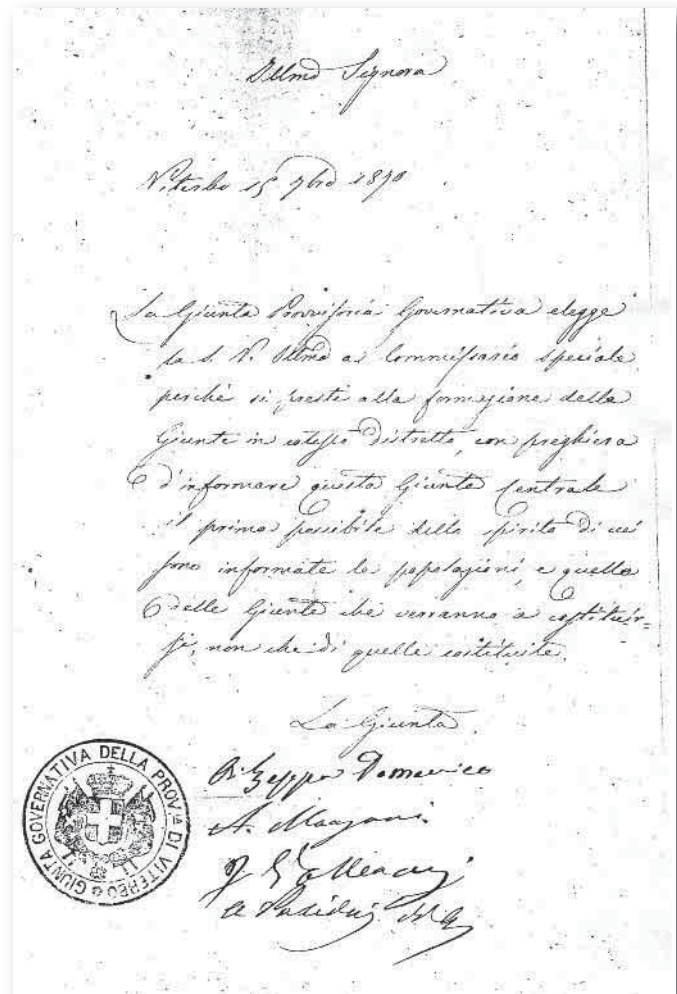 Illmo Signore
Viterbo 15 7bre 1870
La Giunta Provvisoria Governativa elegge
la S. V. Illma a Commissario speciale
perché si presti alla formazione delle
Giunte in cotesto Distretto, con preghiera
d'informare questa Giunta Centrale
il primo possibile dello spirito di cui
sono informate le popolazioni, e quello
delle Giunte che verranno a costituir=
si, non che di quelle costituite.
La Giunta
Zeppa Domenico
A. Mangani
GIUNTA GOVERNATIVA DELLA PROVIA. DI VITERBO